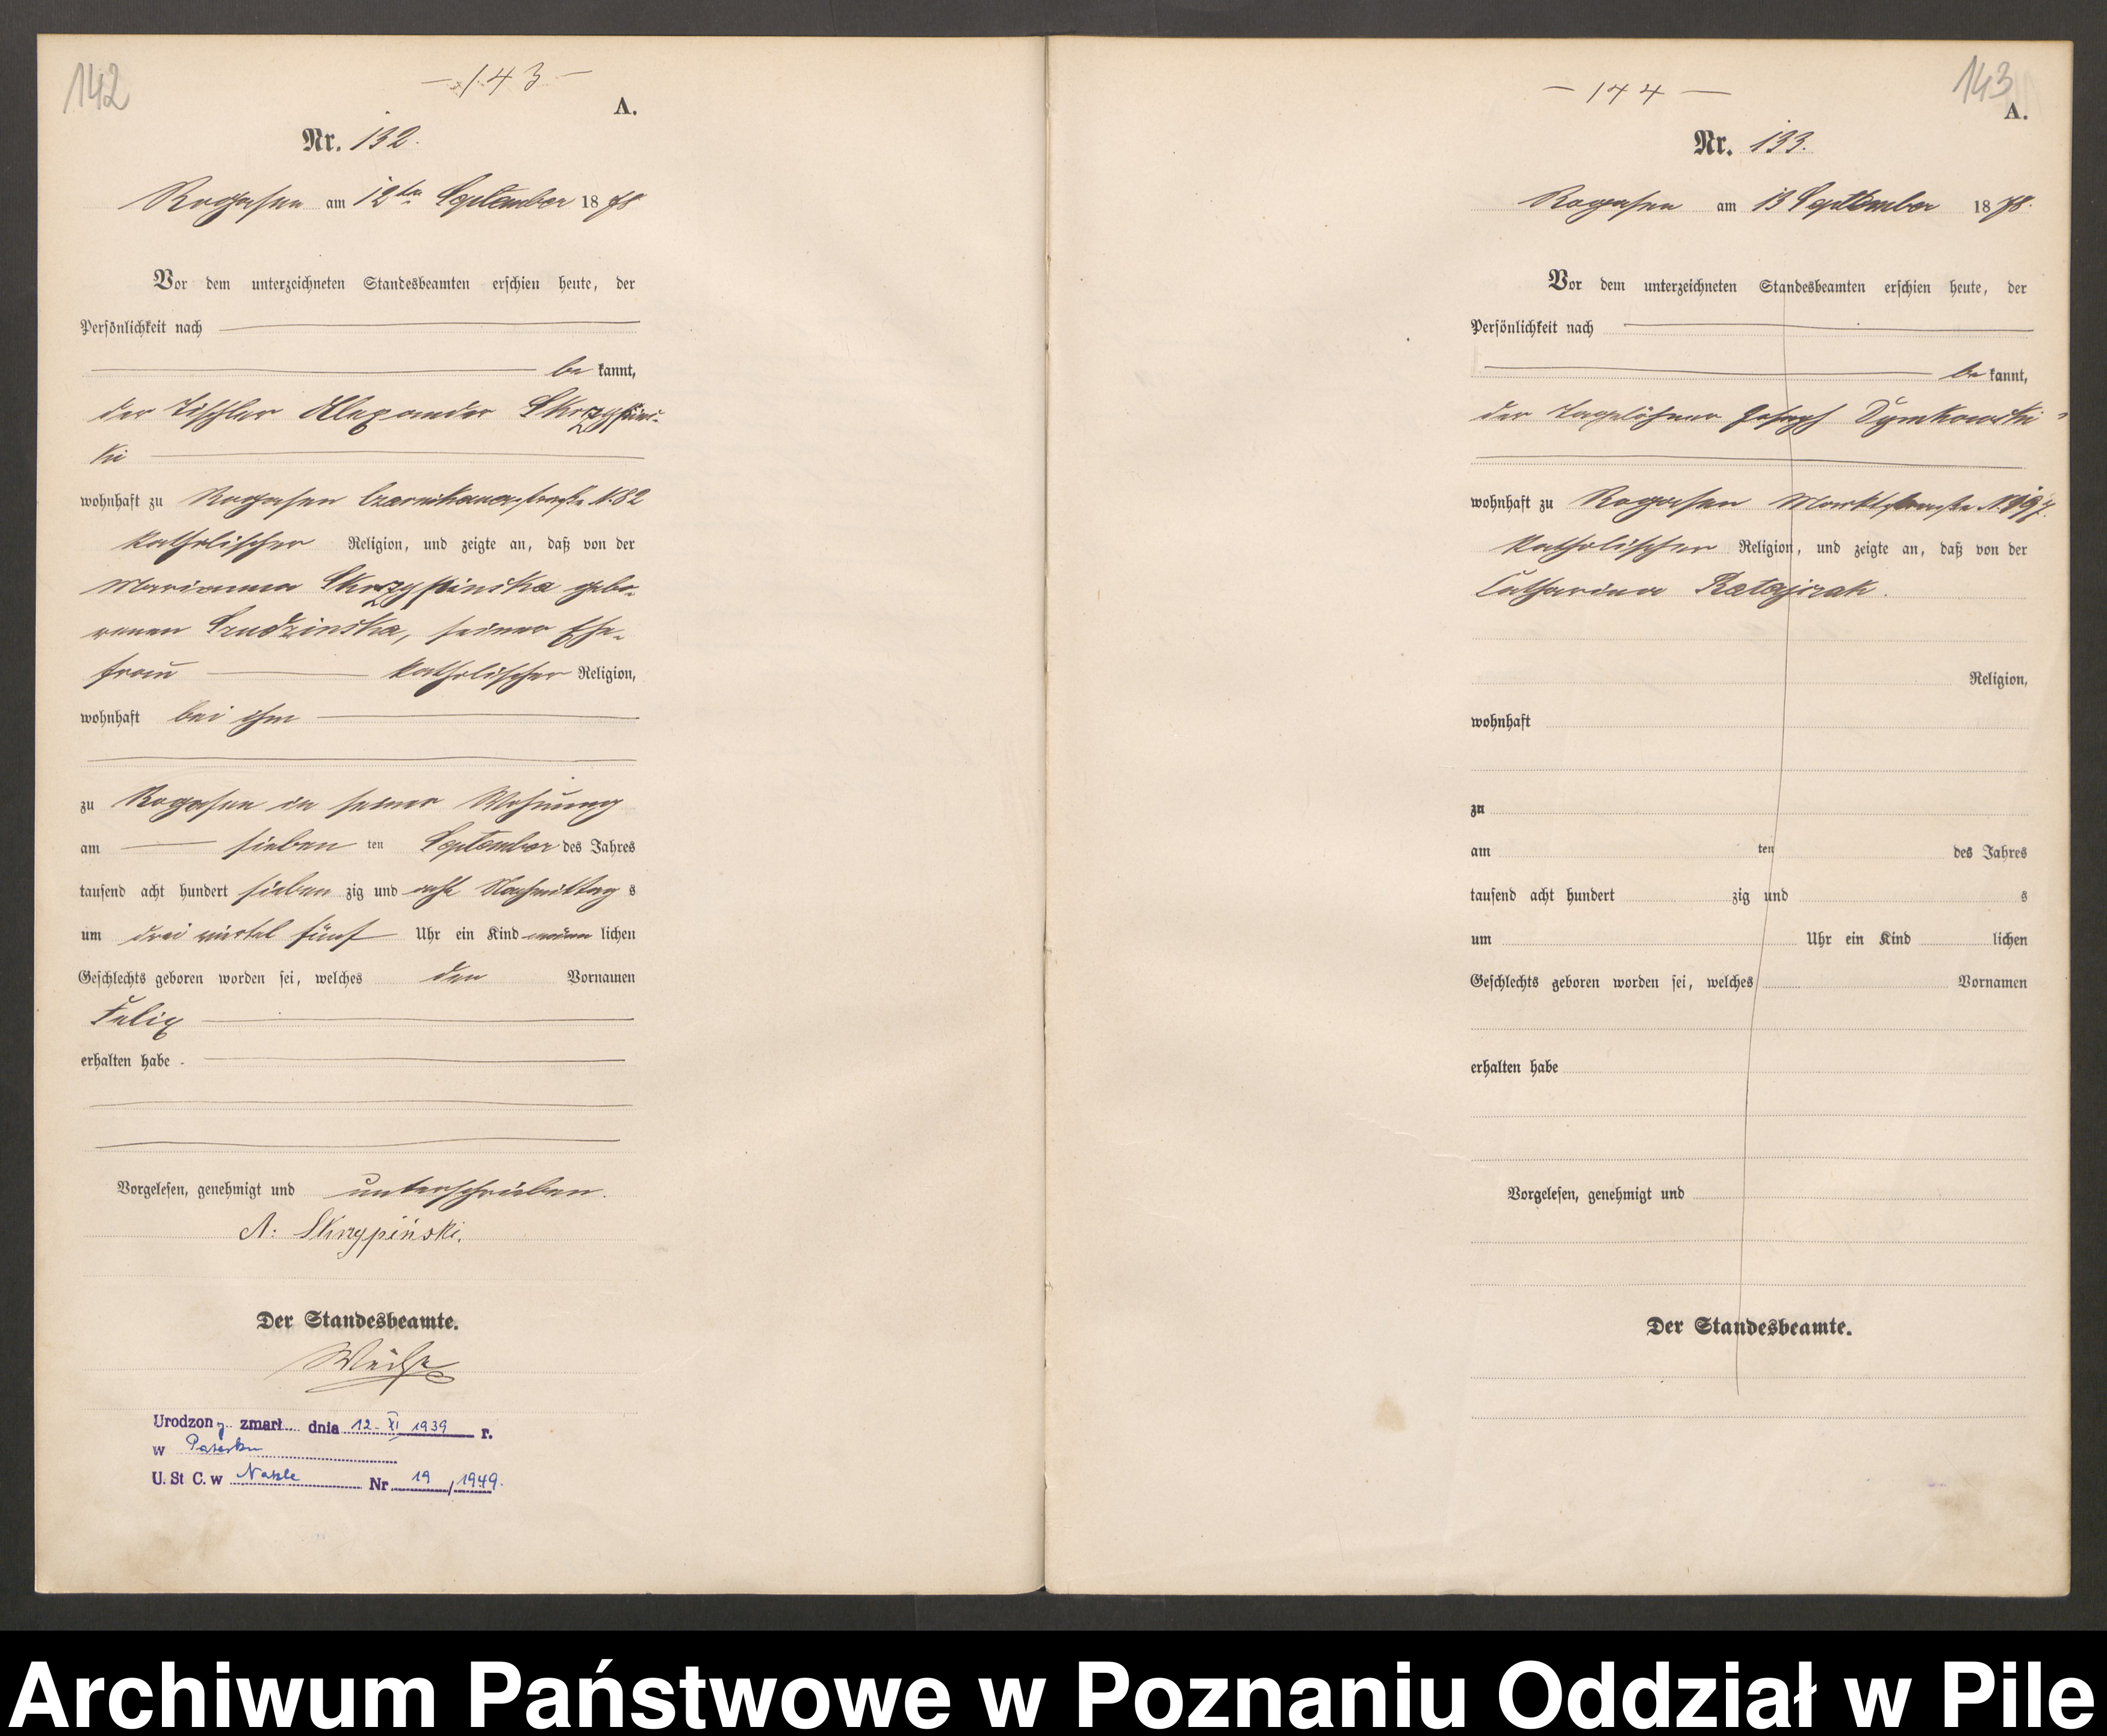 142
- 143 -
A.
Nr. 132.
Rogasen am 12ten September 1878
Vor dem unterzeichneten Standesbeamten erschien heute, der
Persönlichkeit nach
be kannt,
der Tischler Alexander Skrzypins-
ki
wohnhaft zu Rogasen Czarnikauerstraße N. 82
katholischer Religion, und zeigte an, daß von der
Marianna Skrzypinska gebo-
renen Grudzinska, seiner Ehe-
frau katholischer Religion,
wohnhaft bei ihm
zu Rogasen in seiner Wohnung
am sieben ten September des Jahres
tausend acht hundert sieben zig und acht Nachmittag s
um drei viertel fünf Uhr ein Kind männ lichen
Geschlechts geboren worden sei, welches den Vornamen
Felix
erhalten habe.
Vorgelesen, genehmigt und unterschrieben.
A: Skrzypiński.
Der Standesbeamte.
Weise
Urodzon y zmarł dnia 12-XI 1939 r.
w Paterku
U. St C. w Nakle Nr 19 / 1949.
143
- 144 -
A.
Nr. 133.
Rogasen am 13 September 1878.
Vor dem unterzeichneten Standesbeamten erschien heute, der
Persönlichkeit nach
be kannt,
der Tagelöhner Joseph Dymkowski
wohnhaft zu Rogasen Marktstraße N. 197.
katholischer Religion, und zeigte an, daß von der
Catharina Ratajczak.
Religion,
wohnhaft
zu
am ten des Jahres
tausend acht hundert zig und s
um Uhr ein Kind lichen
Geschlechts geboren worden sei, welches Vornamen
erhalten habe
Vorgelesen, genehmigt und
Der Standesbeamte.
Archiwum Państwowe w Poznaniu Oddział w Pile